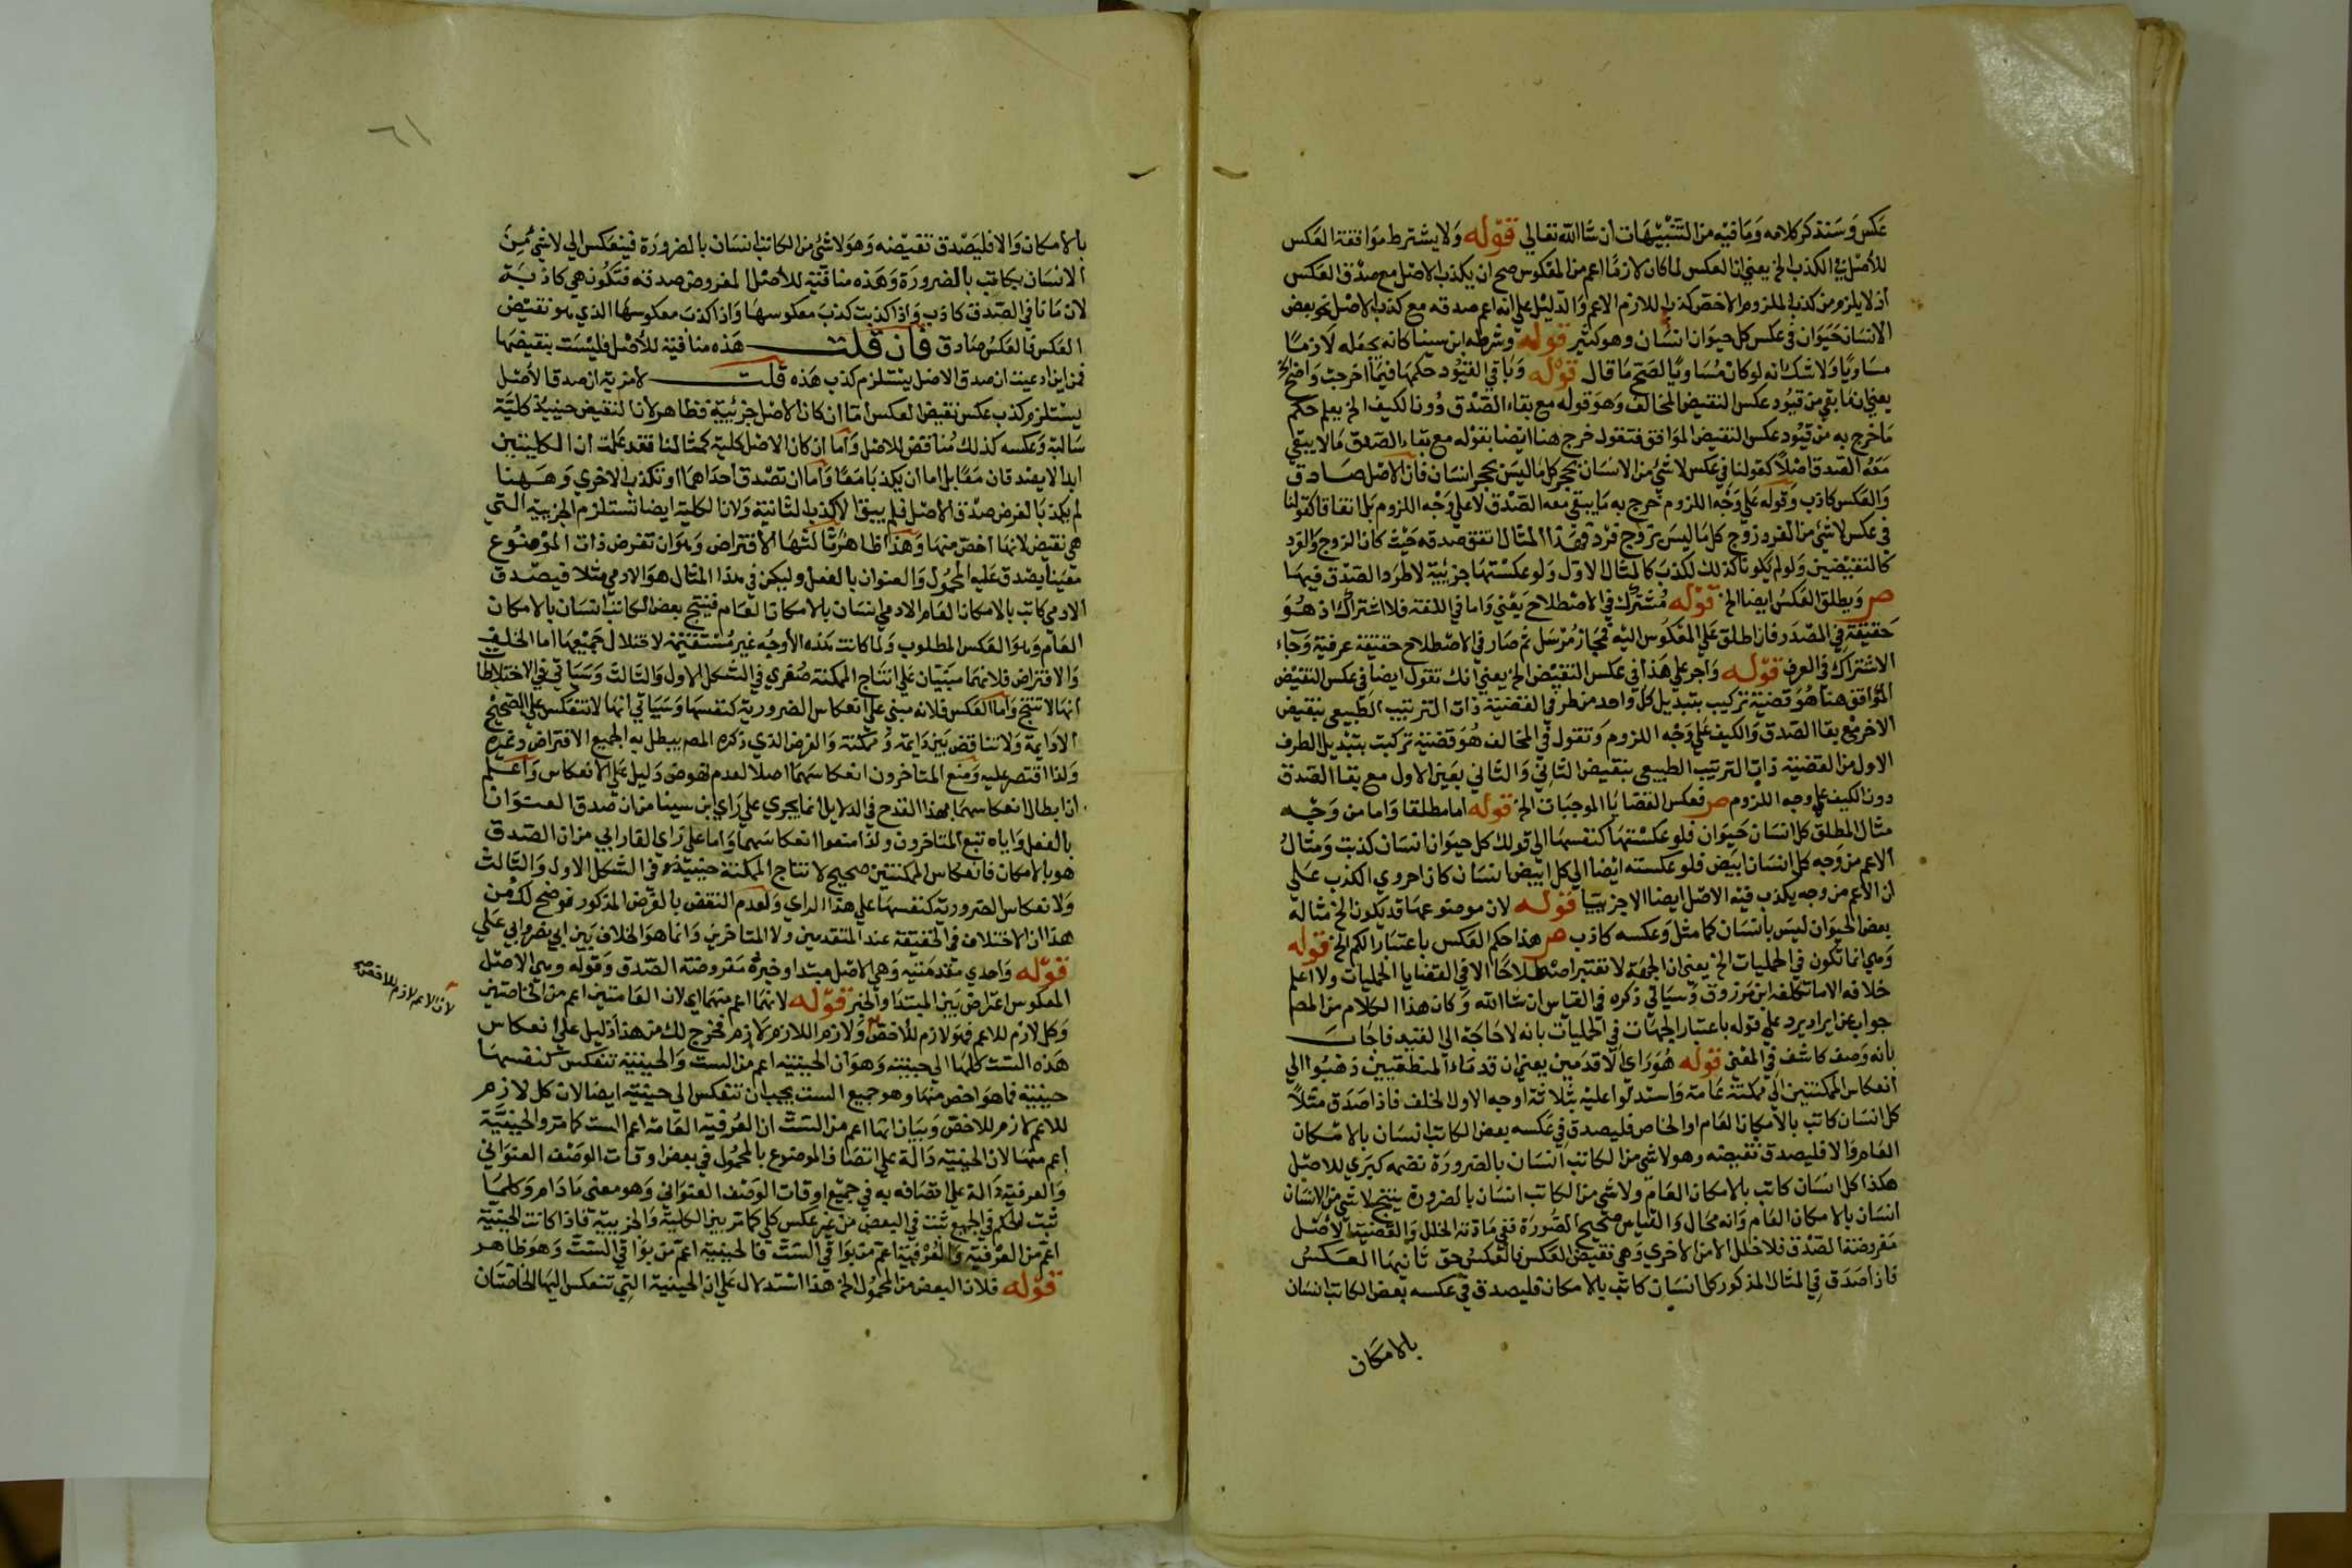 عكس وسنذكر كلامه وما فيه من التنبيهات ان شا الله تعالي قوله ولا يشترط موافقة العكس
للأصل في الكذب الخ يعني ان العكس لما كان لازما اعم من المعكوس صح ان يكذب الاصل مع صدق العكس
اذ لا يلزم من كذب الملزوم الاخص كذب اللازم الاعم والدليل علي انه اعم صدقه مع كذب الاصل نحو بعض
الانسان حيوان في عكس كل حيوان انسان وهو كثير قوله وشرطه ابن سينا كانه جعله لازما
مساويا ولا شك انه لو كان مساويا لصح ما قال قوله وباقي القيود حكمها فيما اخرجت واضح الخ
يعني ان ما بقي من قيود عكس النقيض المخالف وهو قوله مع بقاء الصدق دون الكيف الخ يعلم حكم
ما خرج به من قيود عكس النقيض الموافق فتقول خرج هنا ايضا بقوله مع بقاء الصدق ما لا يبقي
معه الصدق اصلا كقولنا في عكس لا شئ من الانسان بحجر كل ما ليس بحجر انسان فان الاصل صادق
والعكس كاذب وقوله علي وجه اللزوم خرج به ما يبقي معه الصدق لا علي وجه اللزوم بل اتفاقا كقولنا
في عكس لا شئ من الفرد زوج كل ما ليس بزوج فرد فهذا المثال اتفق صدقه حيث كان الزوج والفرد
كالنقيضين ولو لم يكونا كذلك لكذب كالمثال الاول ولو عكستها جزئية لاطرد الصدق فيها
ص ويطلق العكس ايضا الخ قوله مشترك في الاصطلاح يعني واما في اللغة فلا اشتراك اذ هو
حقيقة في المصدر فاذ اطلق علي المعكوس اليه فمجاز مرسل ثم صار في الاصطلاح حقيقة عرفية وجاء
الاشتراك في العرف قوله واجر علي هذا في عكس النقيض الخ يعني انك تقول ايضا في عكس النقيض
الموافق هنا هو قضية تركيب بتبديل كل واحد من طرفي القضية ذات الترتيب الطبيعي بنقيض
الاخر مع بقا الصدق والكيف علي وجه اللزوم وتقول في المخالف هو قضية تركبت بتبديل الطرف
الاول من القضية ذات الترتيب الطبيعي بنقيض الثاني والثاني بعين الاول مع بقا الصدق
دون الكيف علي وجه اللزوم ص فعكس القضايا الموجبات الخ قوله اما مطلقا واما من وجه
مثال المطلق كل انسان حيوان فلو عكستها كنفسها الي قولك كل حيوان انسان كذبت ومثال
الاعم من وجه كل انسان ابيض فلو عكسته ايضا الي كل ابيض انسان كان احروي الكذب علي
ان الاعم من وجه يكذب فيه الاصل ايضا الا جزئيا قوله لان موضوعها قد يكون الخ مثاله
بعض الحيوان ليس بانسان كما مثل وعكسه كاذب ص هذا حكم العكس باعتبار الكم الخ قوله
وهي انما تكون في الحمليات الخ يعني ان الجهة لا تعتبر اصطلاحا الا في القضايا الحمليات ولا اعلم
خلافه الا ما تكلفه ابن مرزوق وسياتي ذكره في القياس ان شا الله وكان هذا الكلام من المص
جواب عن ايراد يرد علي قوله باعتبار الجهات في الحمليات بانه لا حاجة الي القيد فاجاب
بانه وصف كاشف في المعني قوله هو راي الاقدمين يعني ان قدماء المنطقيين ذهبوا الي
انعكاس الممكنتين الي ممكنة عامة واستدلوا عليه بثلاثة اوجه الاول الخلف فاذا صدق مثلا
كل انسان كاتب بالامكان العام او الخاص فليصدق في عكسه بعض الكاتب انسان بالامكان
العام والا فليصدق نقيضه وهو لا شئ من الكاتب انسان بالضرورة نضمه كبري للاصل
هكذا كل انسان كاتب بالامكان العام ولا شئ من الكاتب انسان بالضرورة ينتج لا شئ من الانسان
انسان بالامكان العام وانه محال والقياس صحيح الصورة ففي مادته الخلل والقضية الاصل
مفروضة الصدق فلا خلل الا من الاخري وهي نقيض العكس فالعكس حق ثانيها العكس
فاذا صدق في المثال المذكور كل انسان كاتب بالامكان فليصدق في عكسه بعض الكاتب انسان
بالامكان
٦١
بالامكان والا فليصدق نقيضه وهو لا شئ من الكاتب انسان بالضرورة فينعكس الي لا شئ من
الانسان بكاتب بالضرورة وهذه منافية للأصل المفروض صدقه فتكون هي كاذبة
لان ما نافي الصدق كاذب واذا كذبت كذب معكوسها واذا كذب معكوسها الذي هو نقيض
العكس فالعكس صادق فان قلت هذه منافية للأصل فليست بنقيضها
فمن اين ادعيت ان صدق الاصل يستلزم كذب هذه قلت لا مرية ان صدق الأصل
يستلزم كذب عكس نقيض العكس اما ان كان الاصل جزئية فظاهر لان النقيض حينيذ كلية
سالبة وعكسه كذلك مناقض للاصل واما ان كان الاصل كلية كمثالنا فقد علمت ان الكليتين
ابدا لا يصدقان معا بل اما ان يكذبا معا واما ان تصدق احداهما وتكذب الاخري وههنا
لم يكذبا لفرض صدق الاصل فلم يبق الا كذب الثانية ولان الكلية ايضا تستلزم الجزيية التي
هي نقيض لانها اخص منها وهذا ظاهر ثالثها الافتراض وهو ان تفرض ذات الموضوع
معينا يصدق عليه المحمول والعنوان بالفعل وليكن في هذا المثال هو الادمي مثلا فيصدق
الادمي كاتب بالامكان العام الادمي انسان بالامكان العام فينتج بعض الكاتب انسان بالامكان
العام وهو العكس المطلوب ولما كانت هذه الأوجه غير مستقيمة لاختلال جميعها اما الخلف
والافتراض فلانهما مبنيان علي انتاج الممكنة صغري في الشكل الاول والثالث وسياتي في الاختلاطات
انها لا تنتج واما العكس فلانه مبني علي انعكاس الضرورية كنفسها وسياتي انها لا تنعكس علي الصحيح
الا دايمة ولا تناقض بين دايمة وممكنة والفرض الذي ذكره المص يبطل به الجميع الافتراض وغيره
ولذا اقتصر عليه ومنع المتاخرون انعكاسهما اصلا لعدم نهوض دليل علي الانعكاس واعلم
ان ابطال انعكاسهما بهذا القدح في الدلايل انما يجري علي راي ابن سينا من ان صدق العنوان
بالفعل واياه تبع المتاخرون ولذا منعوا انعكاسهما واما علي راي الفارابي من ان الصدق
هو بالامكان فانعكاس الممكنتين صحيح لانتاج الممكنة حينيذ في الشكل الاول والثالث
ولانعكاس الضرورية كنفسها علي هذا الراي ولعدم النقض بالفرض المذكور فوضح لك من
هذا ان لا خلاف في الحقيقة عند المتقدمين ولا المتاخرين وانما هو الخلاف بين ابي نصر وابي علي
قوله واحدي مقدمتيه وهي الاصل مبتدا وخبره مفروضة الصدق وقوله وهي الاصل
المعكوس اعتراض بين المبتدا والخبر قوله لانهما اعم منهما اي لان العامتين اعم من الخاصتين
وكل لازم للاعم فهو لازم للأخص ولازم اللازم لازم فخرج لك من هذا دليل علي انعكاس
لان الاعم لازم للاخص صح
هذه الست كلها الي حينية وهو ان الحينية اعم من الست والحينية تنعكس كنفسها
حينية فما هو اخص منها وهو جميع الست يجب ان تنعكس الي حينية ايضا لان كل لازم
للاعم لازم للاخص وبيان انها اعم من الست ان العرفية العامة اعم الست كما مر والحينية
اعم منها لان الحينية دالة علي اتصاف الموضوع بالمحمول في بعض اوقات الوصف العنواني
والعرفية دالة علي اتصافه به في جميع اوقات الوصف العنواني وهو معني ما دام وكلما
ثبت الحكم في الجميع ثبت في البعض من غير عكس كلي كما مر بين الكلية والجزيية فاذا كانت الحينية
اعم من العرفية والعرفية اعم من بواقي الست فالحينية اعم من بواقي الست وهو ظاهر
قوله فلان البعض من المحمول الخ هذا استدلال علي ان الحينية التي تنعكس اليها الخاصتان